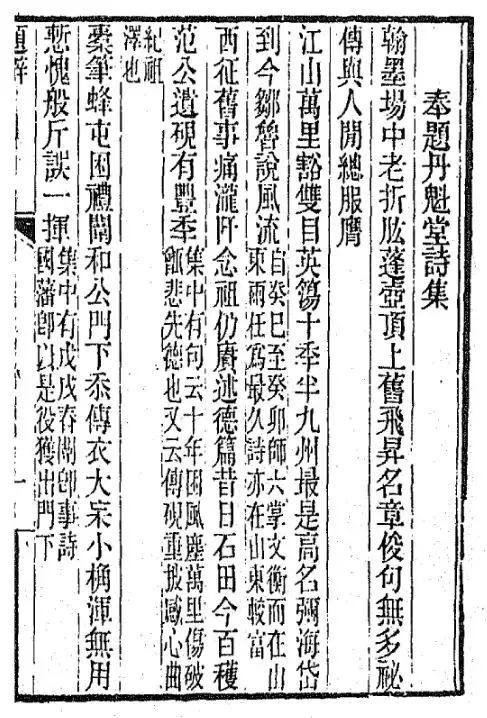 奉題丹魁堂詩集
翰墨場中老折肱蓬壺頂上舊飛昇名章俊句無多祕
傳與人閒總服膺
江山萬里豁雙目英簜十季半九州最是高名彌海岱
到今鄒魯說風流
自癸巳至癸卯師六掌文衡而在山
東兩任爲最久詩亦在山東較富
西征舊事痛瀧阡念祖仍賡述德篇昔日石田今百穫
范公遺硯有豐季
集中有句云十年困風塵萬里傷破
甑悲先德也又云傳硯重披感心曲
紀祖
澤也
橐筆蜂屯困禮闈和公門下忝傳衣大杗小桷渾無用
慙愧般斤誤一揮
集中有戊戌春闈卽事詩
國藩卽以是役獲出門下
題辭